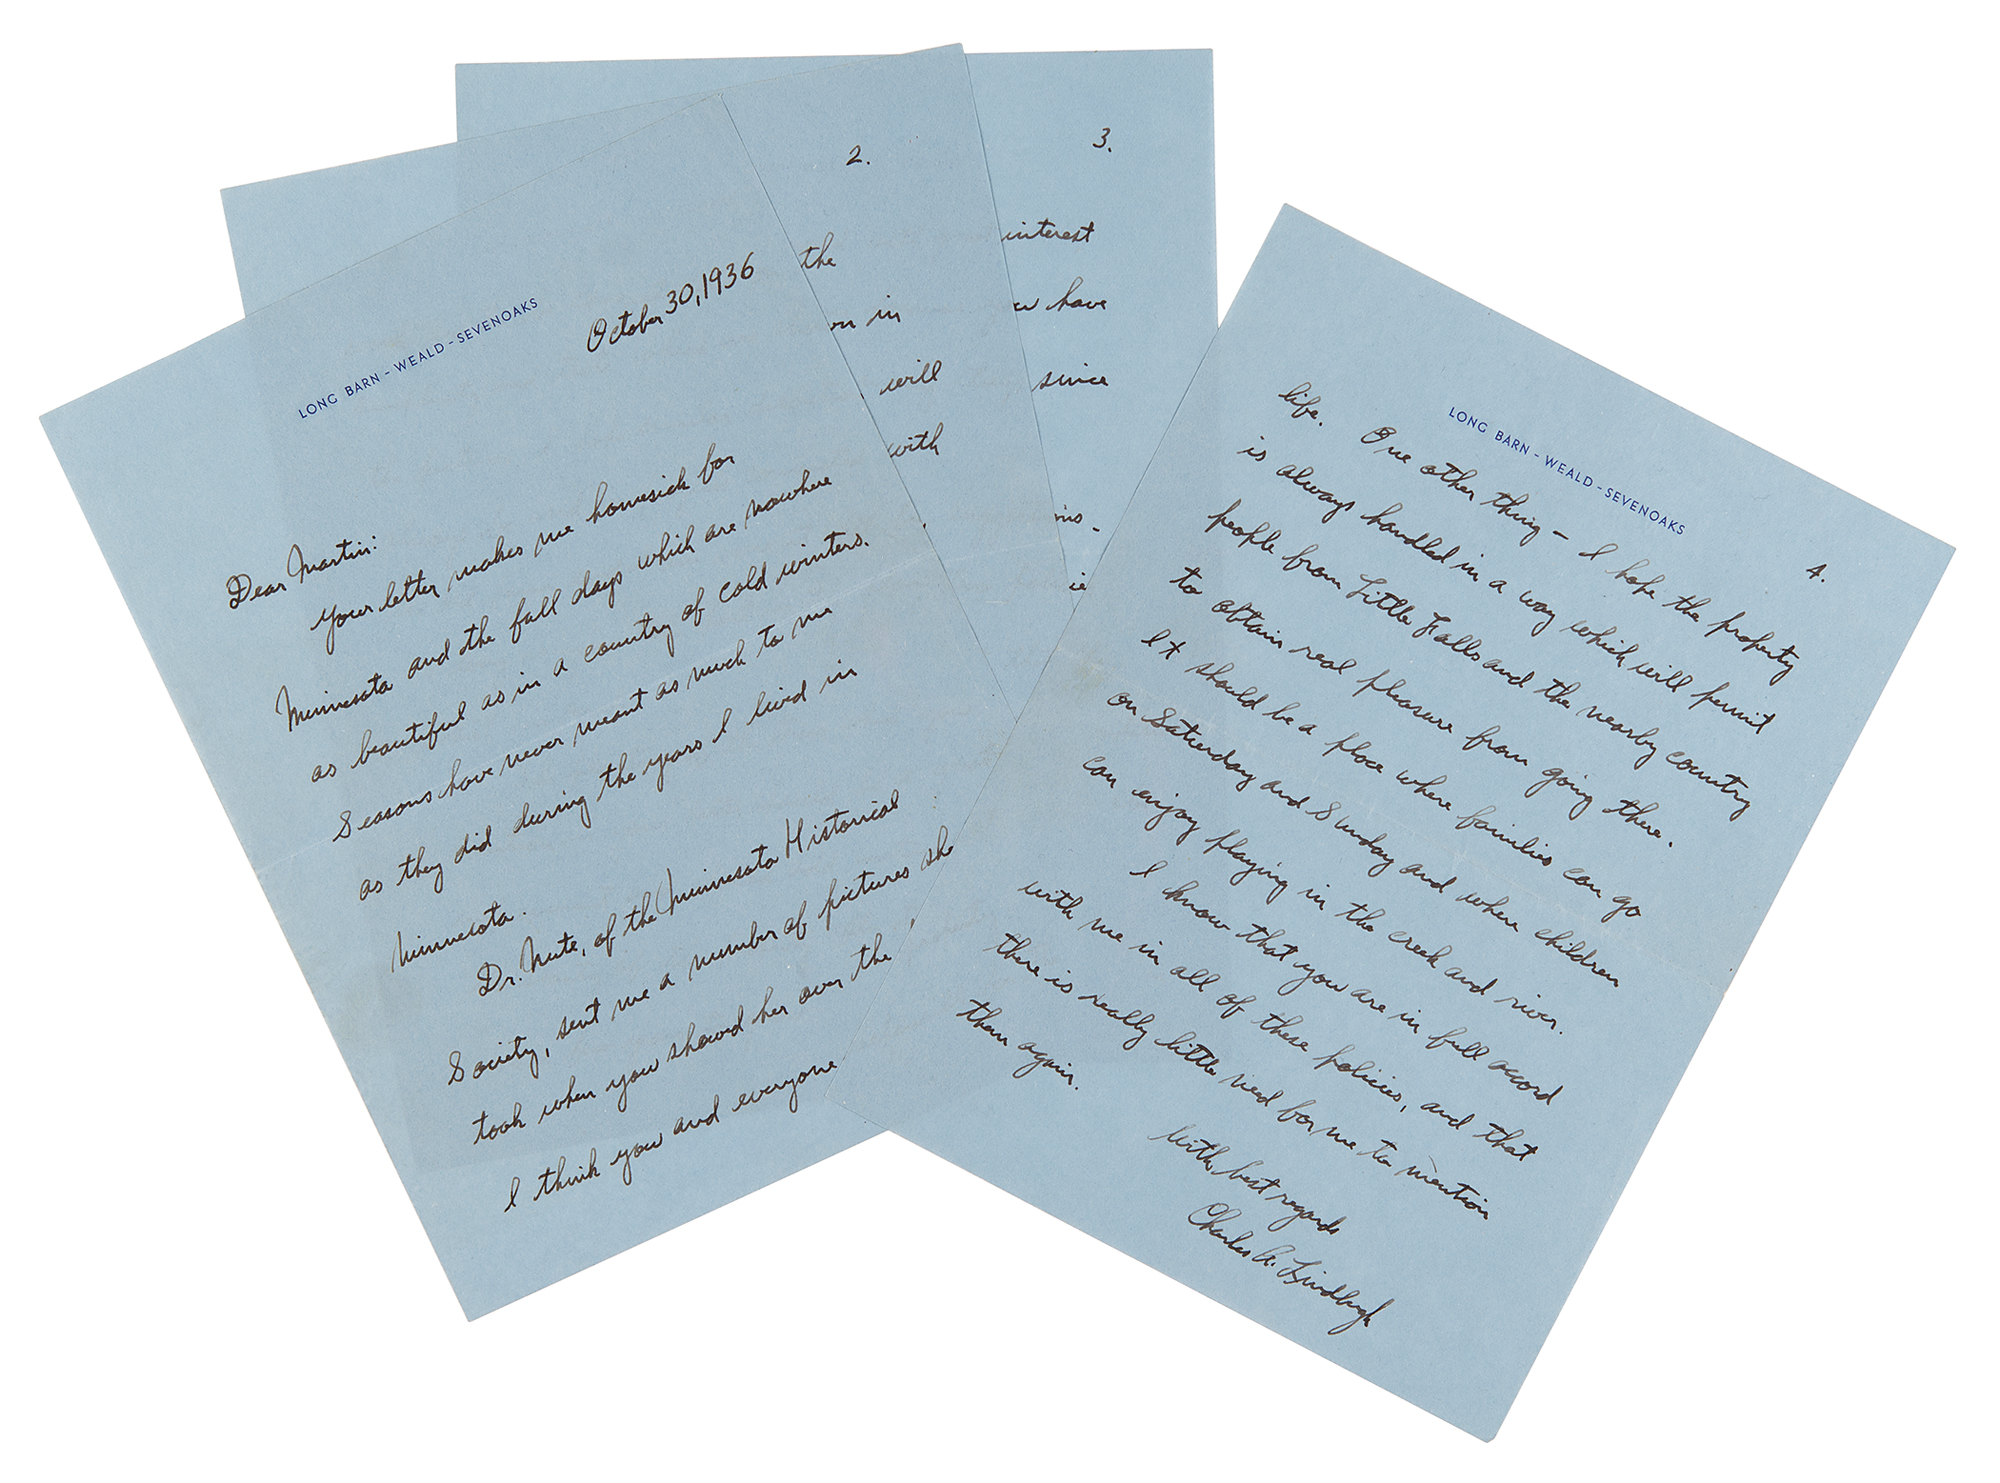 LONG BARN - WEALD - SEVENOAKS
October 30, 1936
Dear Martin:
Your letter makes me homesick for
Minnesota and the fall days which are nowhere
as beautiful as in a country of cold winters.
Seasons have never meant as much to me
as they did during the years I lived in
Minnesota.
Dr. Nute, of the Minnesota Historical
Society, sent me a number of pictures she
took when you showed her over the
I think you and everyone
2.
the
in
will
with
3.
interest
have
since
LONG BARN - WEALD - SEVENOAKS
4.
life. One other thing - I hope the property
is always handled in a way which will permit
people from Little Falls and the nearby country
to obtain real pleasure from going there.
It should be a place where families can go
on Saturday and Sunday and where children
can enjoy playing in the creek and river.
I know that you are in full accord
with me in all of these policies, and that
there is really little need for me to mention
them again.
With best regards
Charles A. Lindbergh